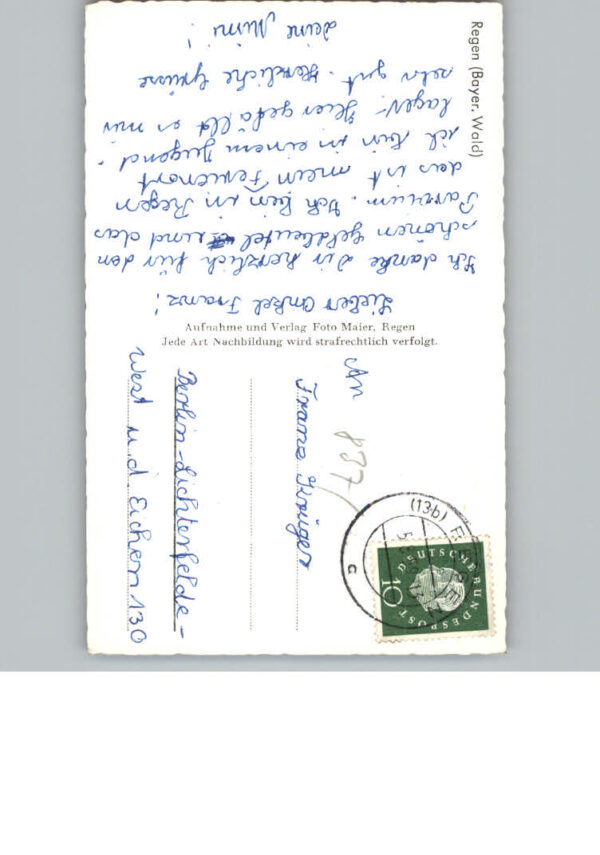 Regen (Bayer. Wald)
Lieber Onkel Franz!
Ich danke Dir herzlich für den
schönen Geldbeutel und das
Parfüm. Ich bin in Regen
das ist mein Ferienort
ich bin in einem Jugend-
lager. Hier gefällt es mir
sehr gut. Herzliche Grüsse
Deine Mimi!
Aufnahme und Verlag Foto Maier, Regen
Jede Art Nachbildung wird strafrechtlich verfolgt.
An
Franz Krüger
Berlin-Lichterfelde-
West u.d. Eichen 130
837
(13b) REGEN
c
DEUTSCHE BUNDESPOST
10